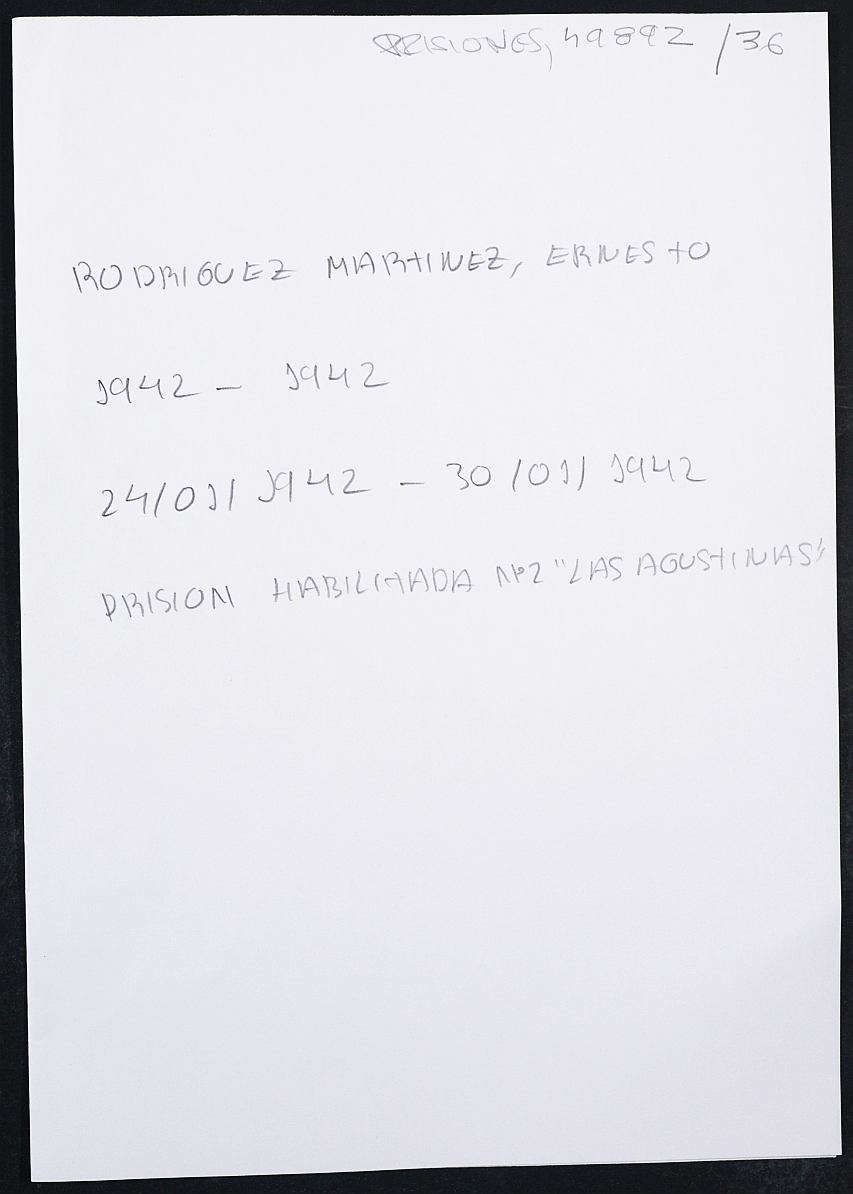 PRISIONES, 49892 /36
RODRIGUEZ MARTINEZ, ERNESTO
1942 - 1942
24/01/1942 - 30/01/1942
PRISION HABILITADA Nº2 "LAS AGUSTINAS"